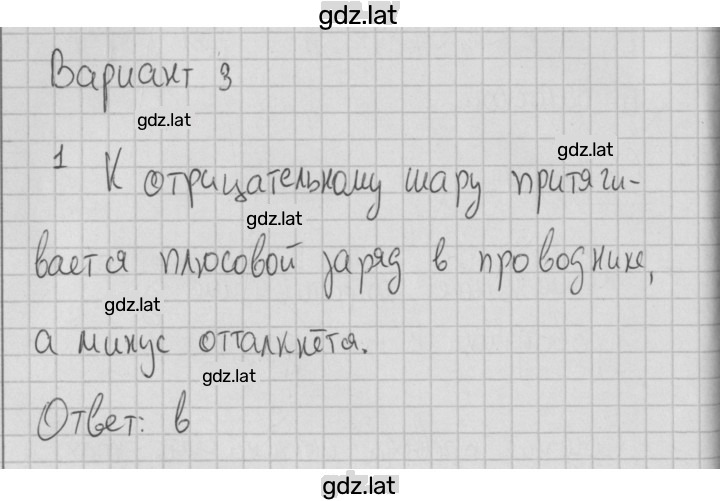 gdz.lat
Вариант 3
gdz.lat
gdz.lat
1 К отрицательному шару притяги-
gdz.lat
вается плюсовой заряд в проводнике,
gdz.lat
а минус отталкнётся.
gdz.lat
Ответ: в
gdz.lat